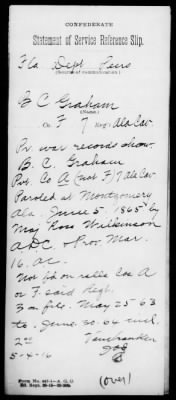 CONFEDERATE
Statement of Service Reference Slip.
Fla Dept Pens
(Source of communication.)
B C Graham
(Name.)
Co. F 7 Reg't Ala Cav
Pr. war records show
B. C. Graham
Pvt. Co A (not F) 7 Ala Cav.
Paroled at Montgomery
Ala. June 5. 1865 by
Maj Ross Wilkinson
ADC & Pro. Mar.
16. AC.
Not fd on rolls Cos A
or F. said Regt.
3 on file. May 25 63
to June 30. 64 incl.
5-4-16
Form No. A. G. O.
(over)